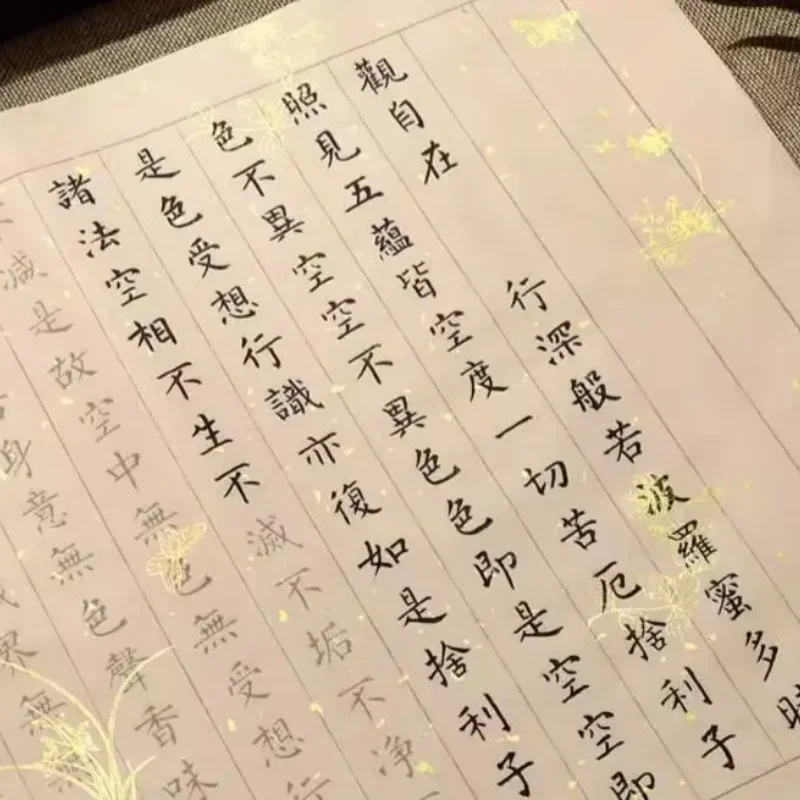 觀自在 行深般若波羅蜜多時
照見五蘊皆空度一切苦厄捨利子
色不異空空不異色色即是空空即
是色受想行識亦復如是捨利子
諸法空相不生不滅不垢不净
減是故空中無色無受想行
身意無色聲香味
界無